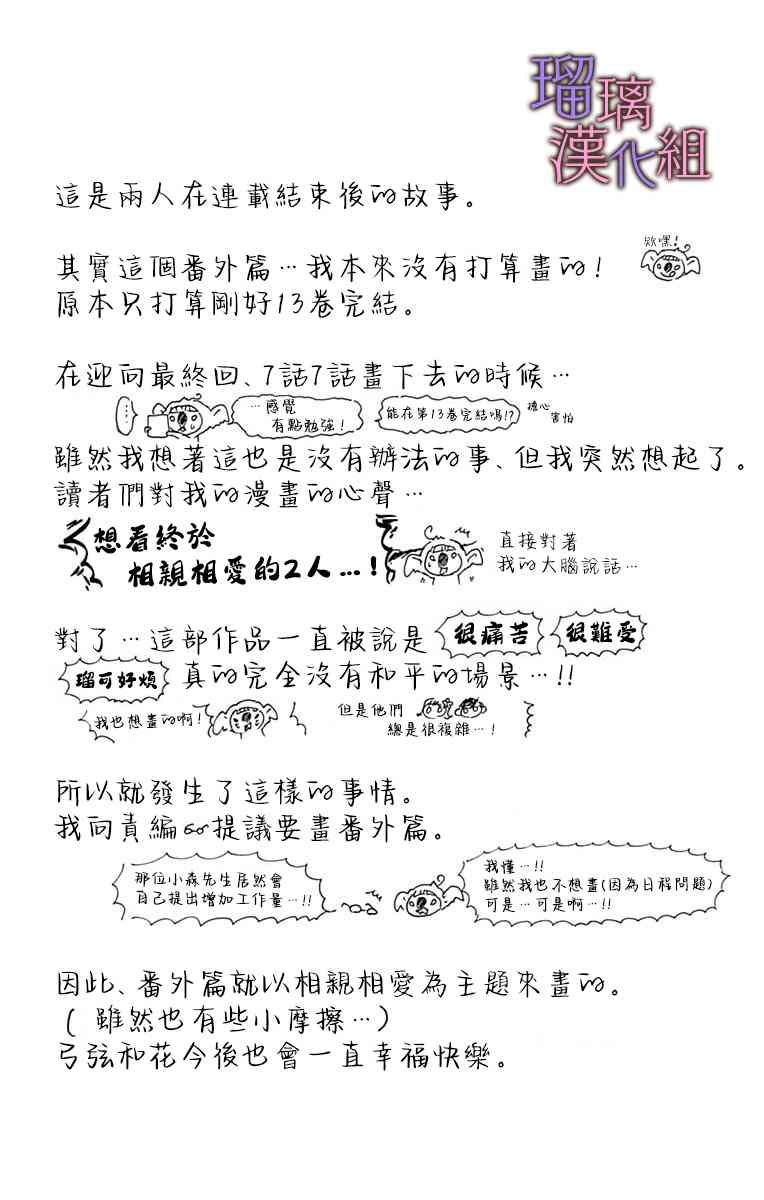 瑠璃
漢化組
這是兩人在連載結束後的故事。
欸嘿！
其實這個番外篇…我本來沒有打算畫的！
原本只打算剛好13卷完結。
在迎向最終回、7話7話畫下去的時候…
…
…感覺
有點勉強！
能在第13卷完結嗎!?
擔心
害怕
雖然我想著這也是沒有辦法的事、但我突然想起了。
讀者們對我的漫畫的心聲…
想看終於
相親相愛的2人…！
直接對著
我的大腦說話…
對了…這部作品一直被說是 很痛苦 很難受
瑠可好煩 真的完全沒有和平的場景…!!
我也想畫的啊！
但是他們
總是很複雜…！
所以就發生了這樣的事情。
我向責編提議要畫番外篇。
那位小森先生居然會
自己提出增加工作量…!!
我懂…!!
雖然我也不想畫(因為日程問題)
可是…可是啊…!!
因此、番外篇就以相親相愛為主題來畫的。
（雖然也有些小摩擦…）
弓弦和花今後也會一直幸福快樂。